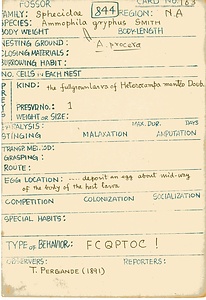 FOSSOR CARD NO. 163
FAMILY: Sphecidae 844 REGION: N.A
SPECIES: Ammophila gryphus SMITH
BODY WEIGHT BODY-LENGTH
NESTING GROUND: A. procera
CLOSING MATERIALS:
BURROWING HABIT:
NO. CELLS IN EACH NEST
PREY KIND: the fullgrown larva of Heterocampa manteo Doub.
PRESVD NO: 1
WEIGHT OR SIZE:
PARALYSIS: MAX. DUR. DAYS
STINGING MALAXATION AMPUTATION
TRANSP. METHOD:
GRASPING:
ROUTE:
EGG LOCATION: .... deposit an egg about mid-way
of the body of the host larva
COMPETITION COLONIZATION SOCIALIZATION
SPECIAL HABITS:
TYPE OF BEHAVIOR: FCQPTOC !
OBSERVERS: REPORTERS:
T. PERGANDE (1891)